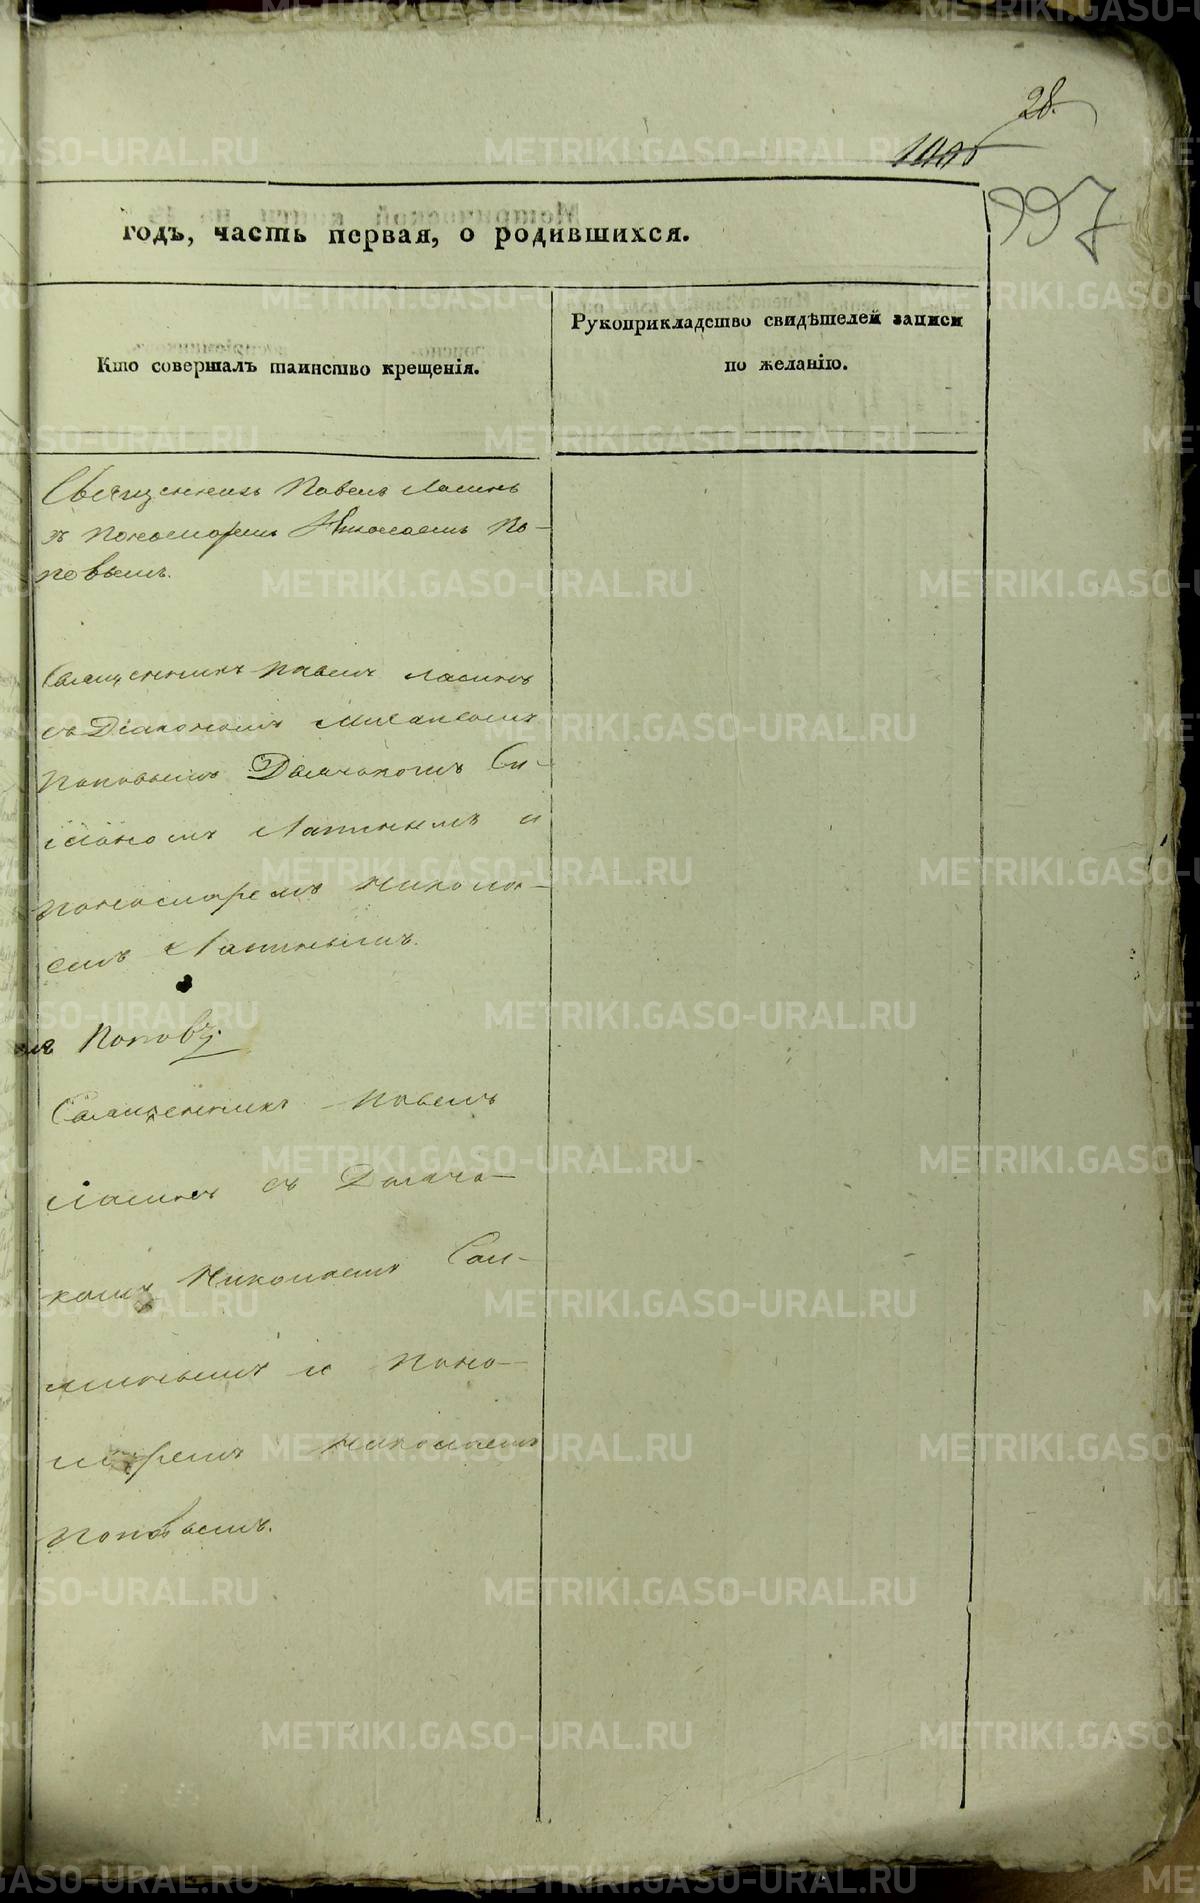 28.
997
годъ, часть первая, о родившихся.
Кто совершалъ таинство крещенія.
Рукоприкладство свидѣтелей записи
по желанію.
Священникъ Павелъ
съ пономаремъ Николаемъ По-
повымъ.
Священникъ Павелъ
съ Діакономъ Михаиломъ
Поповымъ Дьячкомъ
Лапинымъ и
пономаремъ Никола-
емъ Лапинымъ.
Поповъ.
Священникъ Павелъ
съ Дьяч-
комъ Николаемъ
и Поно-
маремъ Николаемъ
Поповымъ.
METRIKI.GASO-URAL.RU